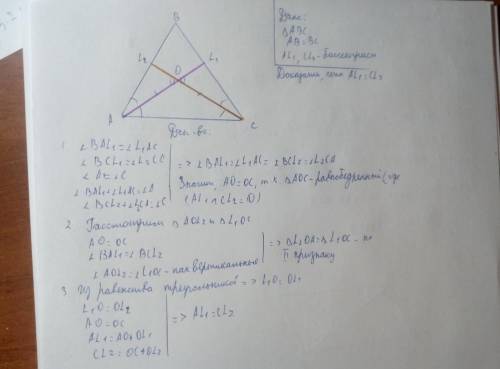 B
L₂
L₁
O
A
C
Дано:
△ABC
AB=BC
AL₁, CL₂ - биссектрисы
Доказать, что AL₁=CL₂
Док-во.
1.
∠BAL₁=∠L₁AC
∠BCL₂=∠L₂CA
∠A=∠C
∠BAL₁+∠L₁AC=∠A
∠BCL₂+∠L₂CA=∠C
=> ∠BAL₁=∠L₁AC=∠BCL₂=∠L₂CA
Значит, AO=OC, т.к. △AOC-равнобедренный (где
(AL₁∩CL₂=O)
2. Рассмотрим △AOL₂ и △L₁OC
AO=OC
∠BAL₁=∠BCL₂
∠AOL₂=∠L₁OC - как вертикальные
=> △L₂OA=△L₁OC - по
II признаку
3. Из равенства треугольников => L₁O=OL₂
L₁O=OL₂
AO=OC
AL₁=AO+OL₁
CL₂=OC+OL₂
=> AL₁=CL₂